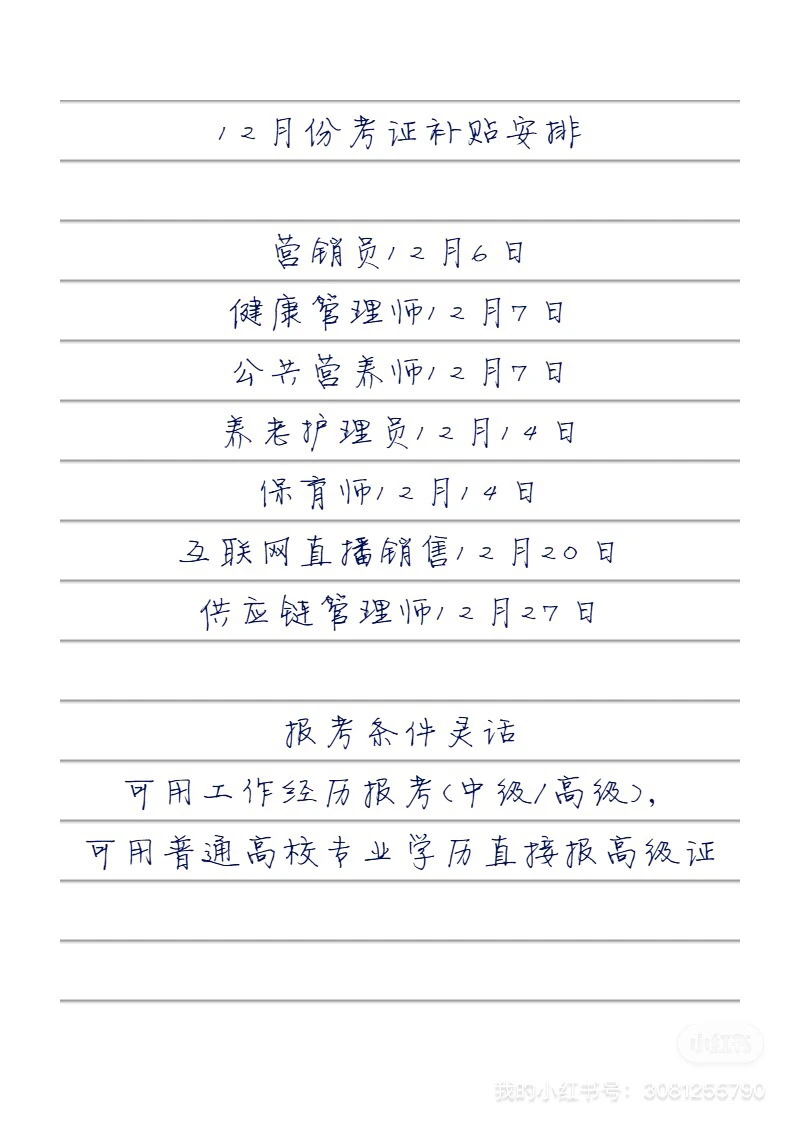 12月份考证补贴安排
营销员12月6日
健康管理师12月7日
公共营养师12月7日
养老护理员12月14日
保育师12月14日
互联网直播销售12月20日
供应链管理师12月27日
报考条件灵话
可用工作经历报考(中级/高级),
可用普通高校专业学历直接报高级证
小红书
我的小红书号：3081255790